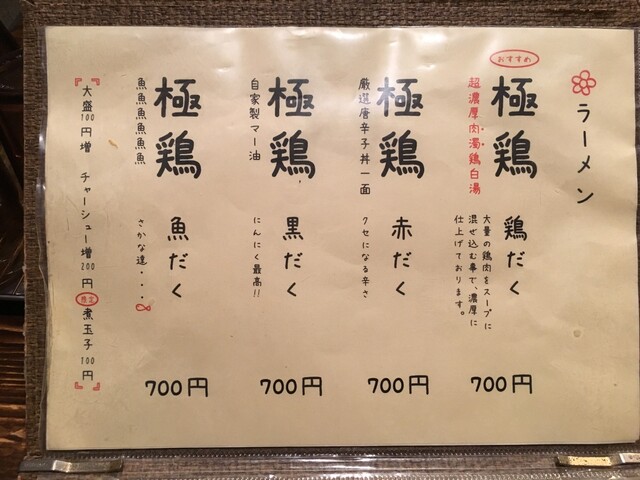 ラーメン
おすすめ
極鶏
鶏だく
700円
超濃厚肉濁鶏白湯
大量の鶏肉をスープに
混ぜ込む事で、濃厚に
仕上げております。
極鶏
赤だく
700円
厳選唐辛子丼一面
クセになる辛さ
極鶏
黒だく
700円
自家製マー油
にんにく最高!!
極鶏
魚だく
700円
魚魚魚魚魚魚
さかな達・・・
大盛100円増 チャーシュー増200円 限定 煮玉子100円